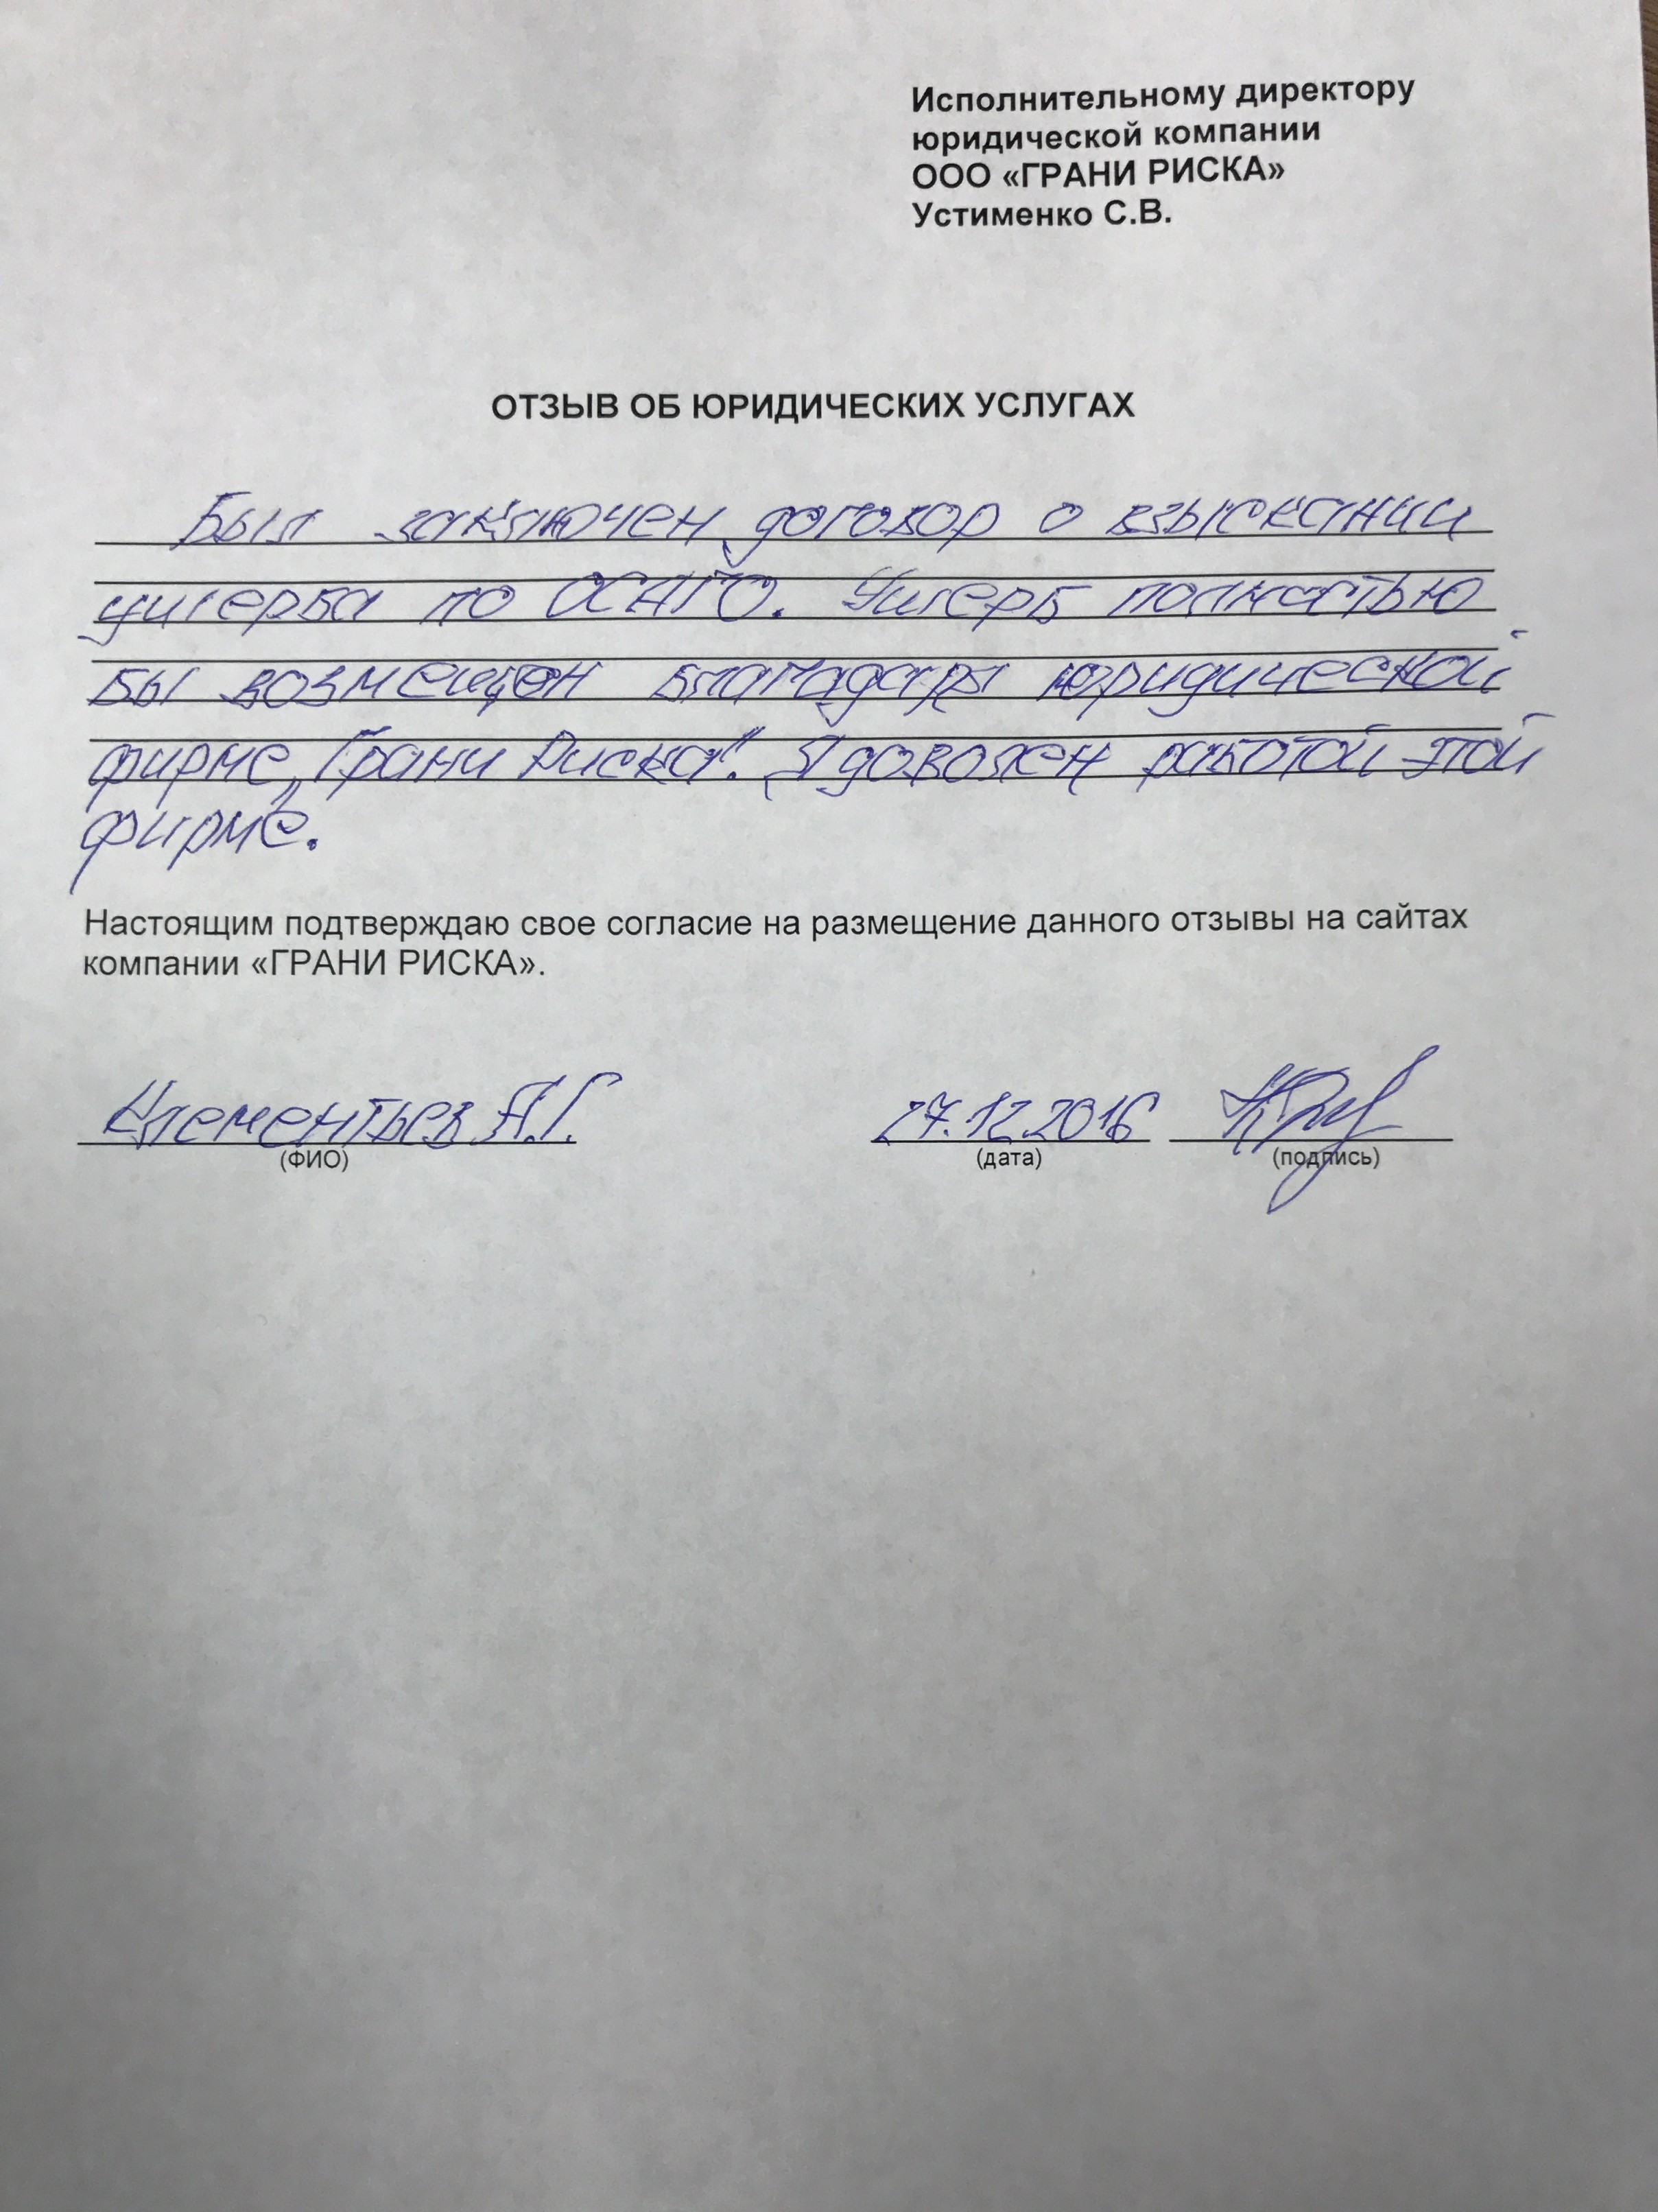 Исполнительному директору
юридической компании
ООО «ГРАНИ РИСКА»
Устименко С.В.
ОТЗЫВ ОБ ЮРИДИЧЕСКИХ УСЛУГАХ
Был заключен договор о взыскании
ущерба по ОСАГО. Ущерб полностью
бы возмещен благадаря юридической
фирме „Грани Риска". Я доволен работой этой
фирме.
Настоящим подтверждаю свое согласие на размещение данного отзывы на сайтах
компании «ГРАНИ РИСКА».
Клементьев А.Г. 27.12.2016
(ФИО) (дата) (подпись)